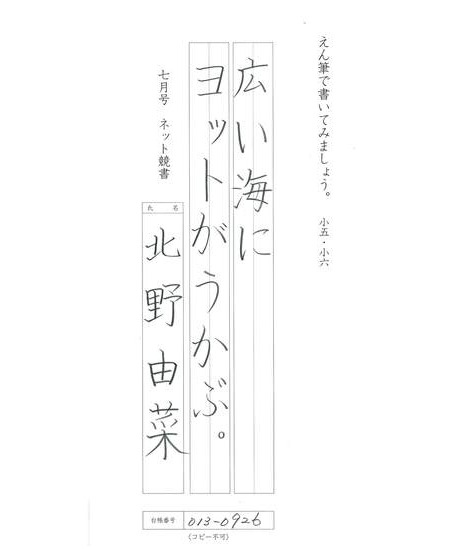 えん筆で書いてみましょう。 小五・小六
広い海に
ヨットがうかぶ。
七月号 ネット競書
氏名
北野由菜
台帳番号 013-0926
(コピー不可)